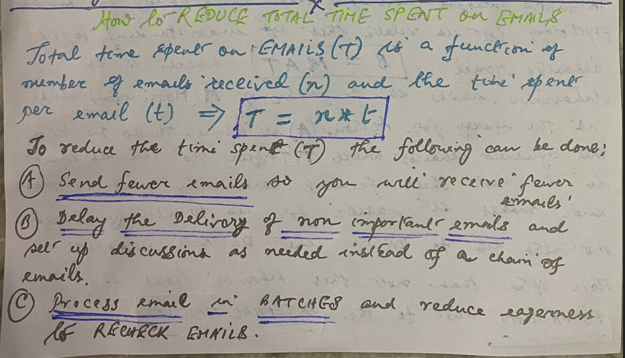 How to REDUCE TOTAL TIME SPENT on EMAILS
Total time spent on EMAILS (T) is a function of
number of emails received (n) and the time spent
per email (t) ⇒ T = n * t
To reduce the time spent (T) the following can be done:
(A) Send fewer emails so you will receive fewer
emails'
(B) Delay the Delivery of non important emails and
set up discussions as needed instead of a chain of
emails.
(C) Process email in BATCHES and reduce eagerness
to RECHECK EMAILS.